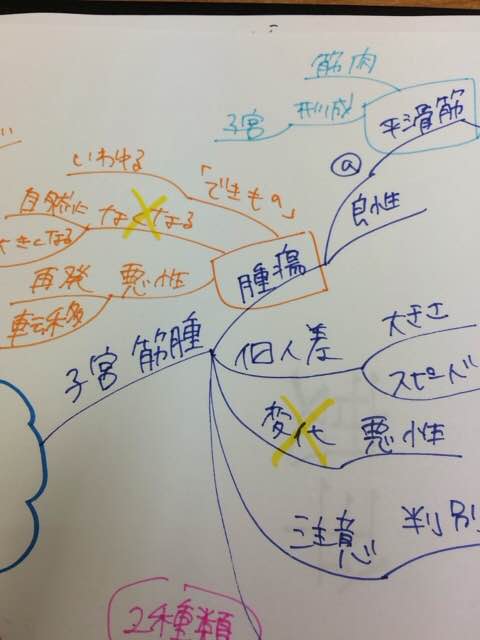 筋肉
子宮 形成
平滑筋
いわゆる
「できもの」
a
良性
自然に なくなる
大きくなる
再発 悪性
転移
腫瘍
大きさ
子宮筋腫
個人差
スピード
変化 悪性
注意 判別
2種類